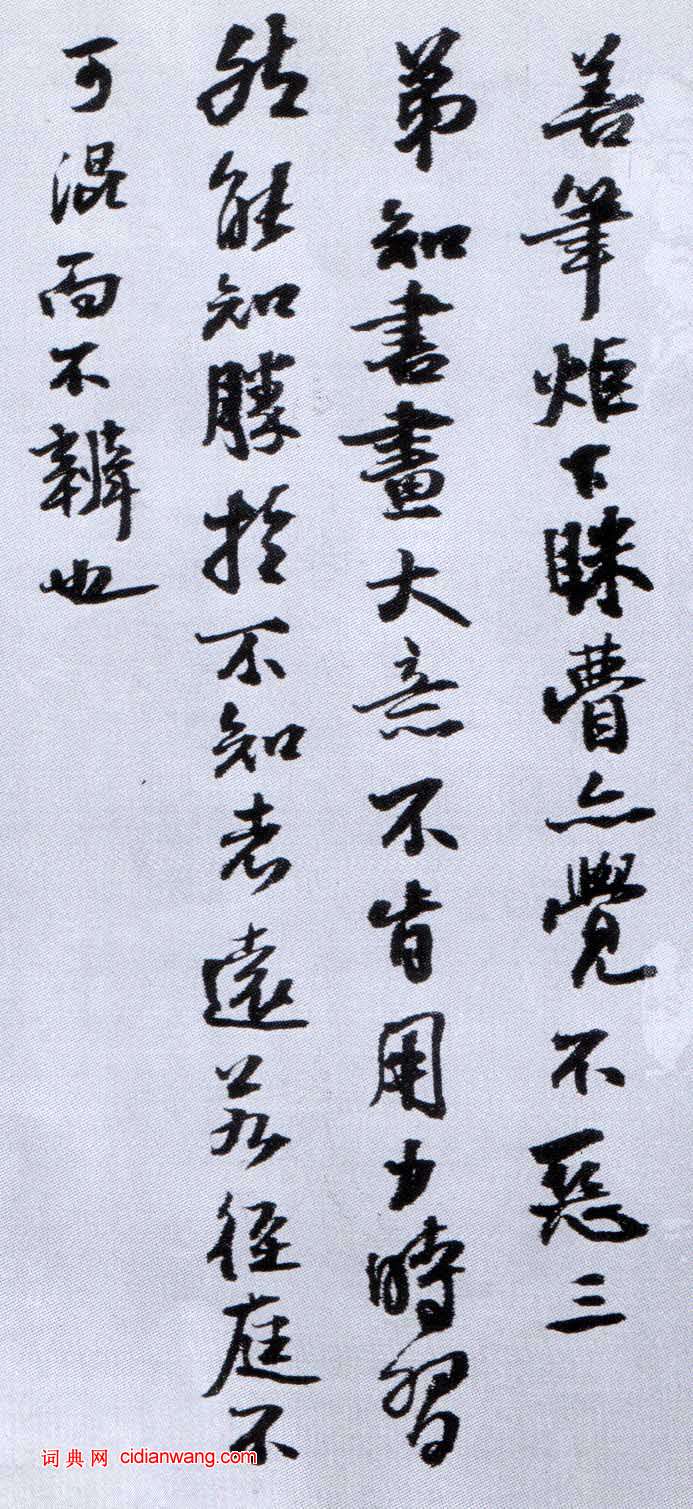 善筆炬下眯瞢亦覺不惡三
弟知書畫大意不肯用少時習
然能知勝於不知者遠若徑庭不
可混而不辨也
词典网 cidianwang.com